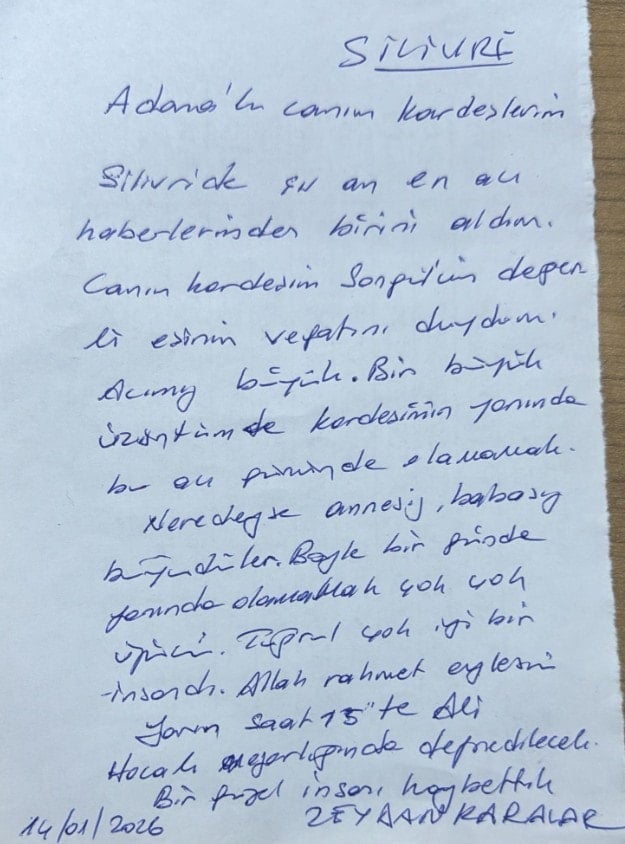 SİLİVRİ
Adana'lı canım kardeşlerim
Silivride şu an en acı
haberlerinden birini aldım.
Canım kardeşim Songül'ün değer
li eşinin vefatını duydum.
Acımız büyük. Bir büyük
üzüntüm de kardeşimin yanında
bu acı gününde olamamak.
Neredeyse annesiz, babasız
büyüdüler. Böyle bir günde
yanında olamamak çok çok
üzücü. Tuğrul çok iyi bir
insandı. Allah rahmet eylesin
Yarın saat 13" te Ali
Hocalı mezarlığında defnedilecek.
Bir güzel insanı kaybettik
14/01/2026 ZEYDAN KARALAR